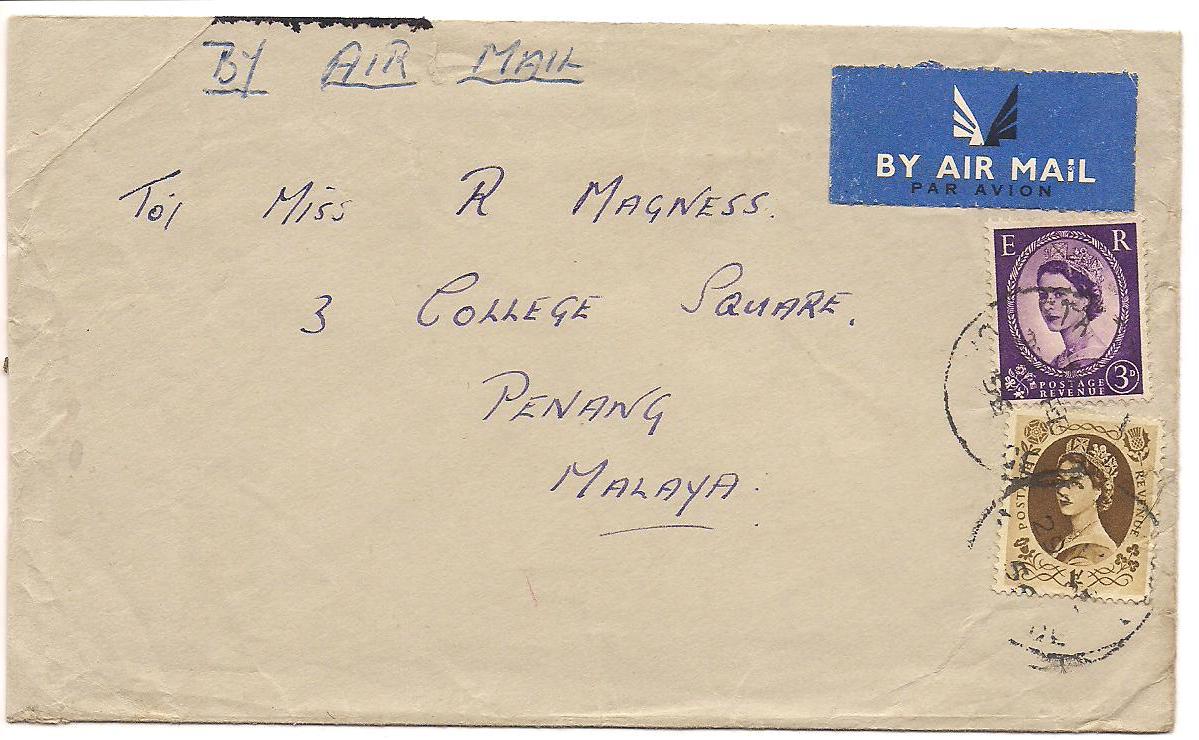 BY AIR MAIL
BY AIR MAIL
PAR AVION
To/ Miss R Magness.
3 College Square.
Penang
Malaya.
E R
POSTAGE
REVENUE
3D
POSTAGE REVENUE